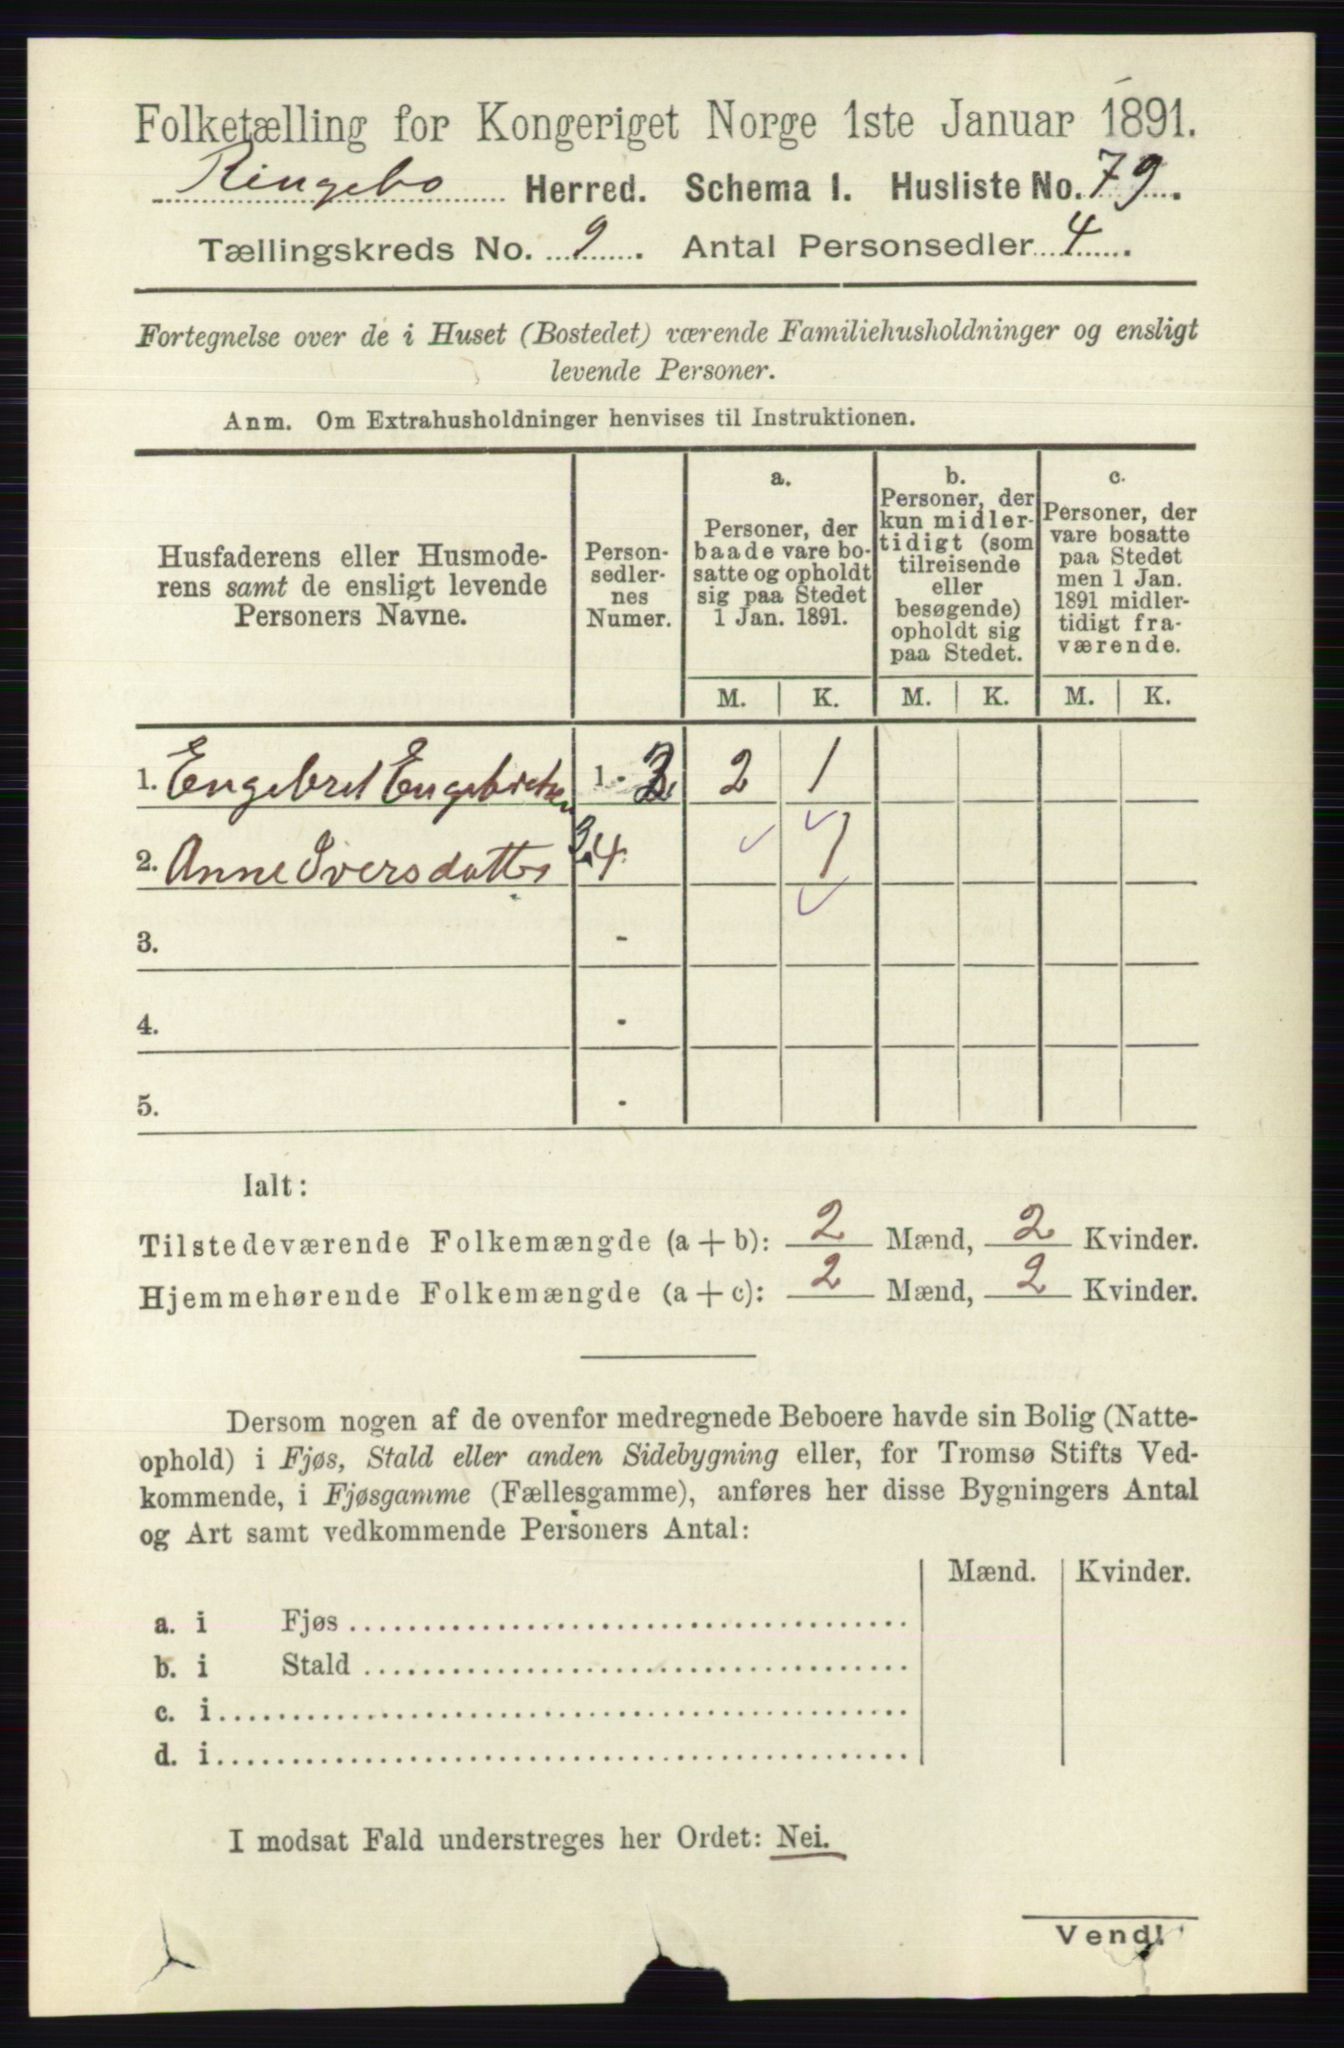 Folketælling for Kongeriget Norge 1ste Januar 1891.
Ringebo Herred. Schema I. Husliste No. 79.
Tællingskreds No. 9. Antal Personsedler 4.
Fortegnelse over de i Huset (Bostedet) værende Familiehusholdninger og ensligt
levende Personer.
Anm. Om Extrahusholdninger henvises til Instruktionen.
Husfaderens eller Husmode-
rens samt de ensligt levende
Personers Navne.
Person-
sedler-
nes
Numer.
a.
Personer, der
baade vare bo-
satte og opholdt
sig paa Stedet
1 Jan. 1891.
b.
Personer, der
kun midler-
tidigt (som
tilreisende
eller
besøgende)
opholdt sig
paa Stedet.
c.
Personer, der
vare bosatte
paa Stedet
men 1 Jan.
1891 midler-
tidigt fra-
værende.
M. K. M. K. M. K.
1. Engebret Engebretsen 1 - 3 2 1
2. Anne Iversdatter 4 1
3. -
4. -
5. -
Ialt:
Tilstedeværende Folkemængde (a + b): 2 Mænd, 2 Kvinder.
Hjemmehørende Folkemængde (a + c): 2 Mænd, 2 Kvinder.
Dersom nogen af de ovenfor medregnede Beboere havde sin Bolig (Natte-
ophold) i Fjøs, Stald eller anden Sidebygning eller, for Tromsø Stifts Ved-
kommende, i Fjøsgamme (Fællesgamme), anføres her disse Bygningers Antal
og Art samt vedkommende Personers Antal:
Mænd. Kvinder.
a. i Fjøs
b. i Stald
c. i
d. i
I modsat Fald understreges her Ordet: Nei.
Vend!